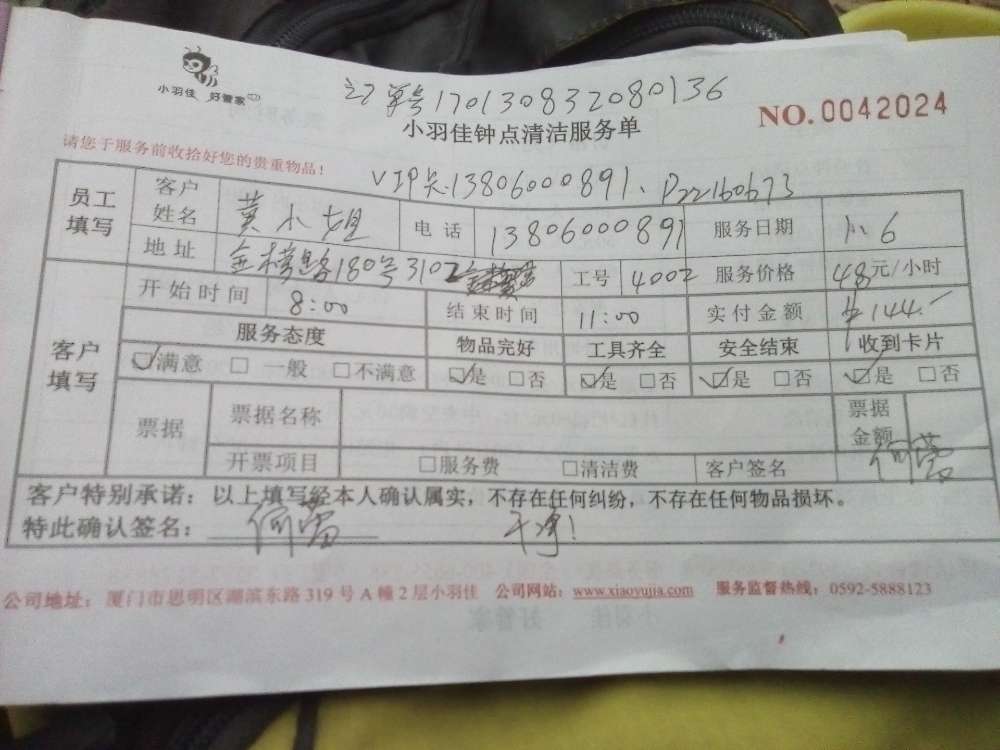 小羽佳 好管家
订单号170130832080136
NO.0042024
小羽佳钟点清洁服务单
请您于服务前收拾好您的贵重物品！
VIP卡:13806000891、P22160673
员工填写
客户姓名 黄小姐 电话 13806000891 服务日期 1.6
地址 金榜路180号3102 工号 4002 服务价格 48元/小时
客户填写
开始时间 8:00 结束时间 11:00 实付金额 144
服务态度 物品完好 工具齐全 安全结束 收到卡片
☑满意 □一般 □不满意 ☑是 □否 ☑是 □否 ☑是 □否 ☑是 □否
票据 票据名称 票据金额
开票项目 □服务费 □清洁费 客户签名 何蕾
客户特别承诺：以上填写经本人确认属实，不存在任何纠纷，不存在任何物品损坏。
特此确认签名： 何蕾 干净!
公司地址：厦门市思明区湖滨东路319号A幢2层小羽佳 公司网站：www.xiaoyujia.com 服务监督热线：0592-5888123